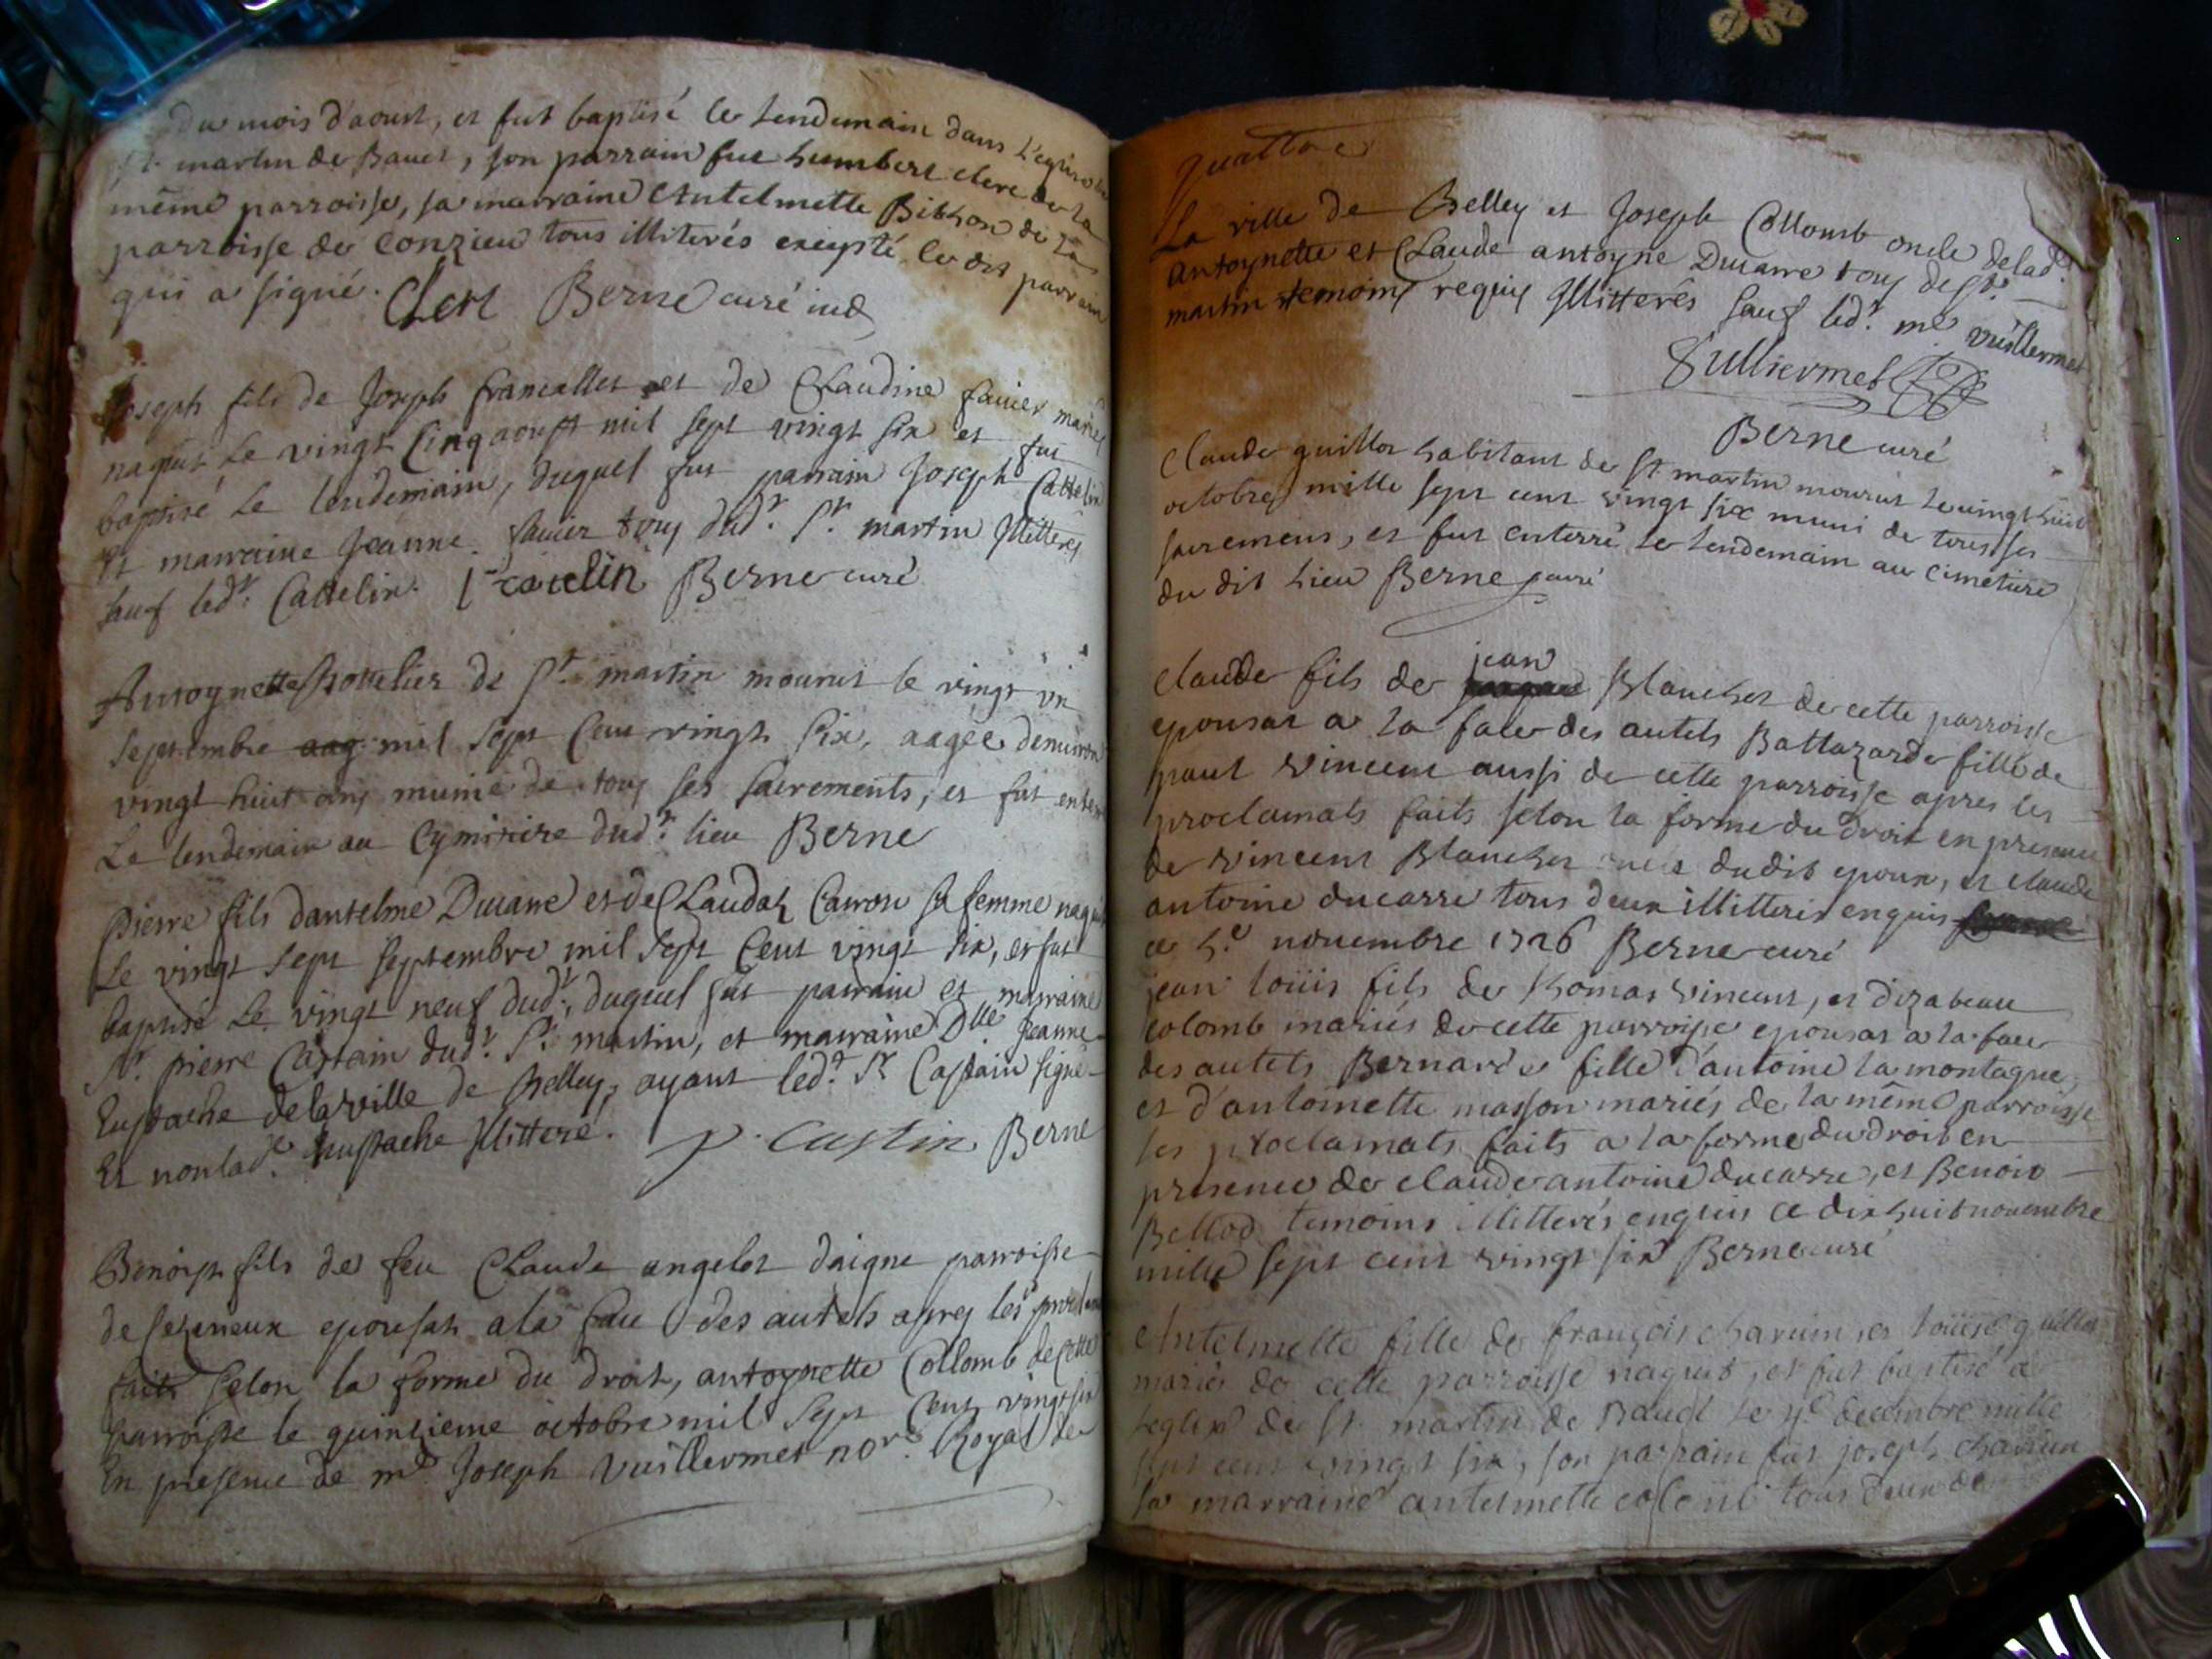 du mois d'aoust, et fut baptisé le lendemain dans l'eglise
St. martin de Bavet, son parrain fut humbert clerc de la
même parroisse, sa marraine Antelmette Bithon de la
parroisse de Conzieu tous illiterés exepté le dit parrain
qui a signé. Clert Berne curé
Joseph fils de Joseph francallet et de Claudine favier mariés
naquit le vingt Cinq aoust mil sept vingt six et fut
baptisé le lendemain, duquel fut parrain Joseph Cattelin
et marraine Jeanne favier touy dudt. St. martin Jllitterés
sauf ledt. Cattelin. J catelin Berne curé
Antoynette hottelier de St. martin mourut le vingt un
septembre aag mil sept Cent vingt six, aagée denviron
vingt huit ans munie de touy ses sacrements, et fut enter
Le lendemain au Cymitiere dudt. lieu Berne
Pierre fils dantelme Ducarre et de Claudaz Cairon sa femme naquit
le vingt sept septembre mil sept Cent vingt six, et fut
baptisé le vingt neuf dudt, duquel fut parrain et marraine
Sr. pierre Castain dudt. St. martin, et marraine Dlle Jeanne
Eustache de la ville de Belley, ayant ledt. Sr Castain signé
Et non lad. Eustache Jllitteré. p. Castin Berne
Benoist fils de feu Claude angelot daigne parroisse
de Seyzerieux epousat a la face des autels apres les proclam
faits selon la forme du droit, antoynette Collomb de Cette
parroisse le quinzieme octobre mil sept Cent vingt six
En presence de me Joseph Vuillermet nore. Royal de
quattre
La ville de Belley et Joseph Collomb oncle de lad.
Antoynette et Claude antoyne Ducarre touy de St.
martin temoins requis Jllitterés sauf ledt. me. vuillermet
Vulliermet
Berne curé
Claude guillot habitant de St. martin mourut le vingt huit
octobre mille sept cent vingt six muni de tous ses
sacremens, et fut enterré le lendemain au cimetiere
du dit lieu Berne curé
jean
Claude fils de Blanchet de cette parroisse
epousat a la face des autels Battazarde fille de
paul vincent aussi de cette parroisse apres les
proclamats faits selon la forme du droit en presence
de vincent Blanchet oncle dudit epoux, et claude
antoine ducarre tous deux illitterés enquis
ce 4e novembre 1726 Berne curé
jean loüis fils de thomas vincent, et dizabeau
colomb mariés de cette parroisse epousat a la face
des autels Bernarde fille d'antoine la montagne,
et d'antoinette masson mariés de la même parroisse
les proclamats faits a la forme du droit en
presence de claude antoine ducarre, et Benoit
Bellod temoins illitterés enquis ce dix huit novembre
mille sept cent vingt six Berne curé
Antelmette fille de françois charvin, et loüise guillot
mariés de cette parroisse naquit, et fut baptisé a
leglise de St. martin de Bavet le 4e decembre mille
sept cent vingt six, son parrain fut joseph charvin
sa marraine antelmette colomb tous deux de